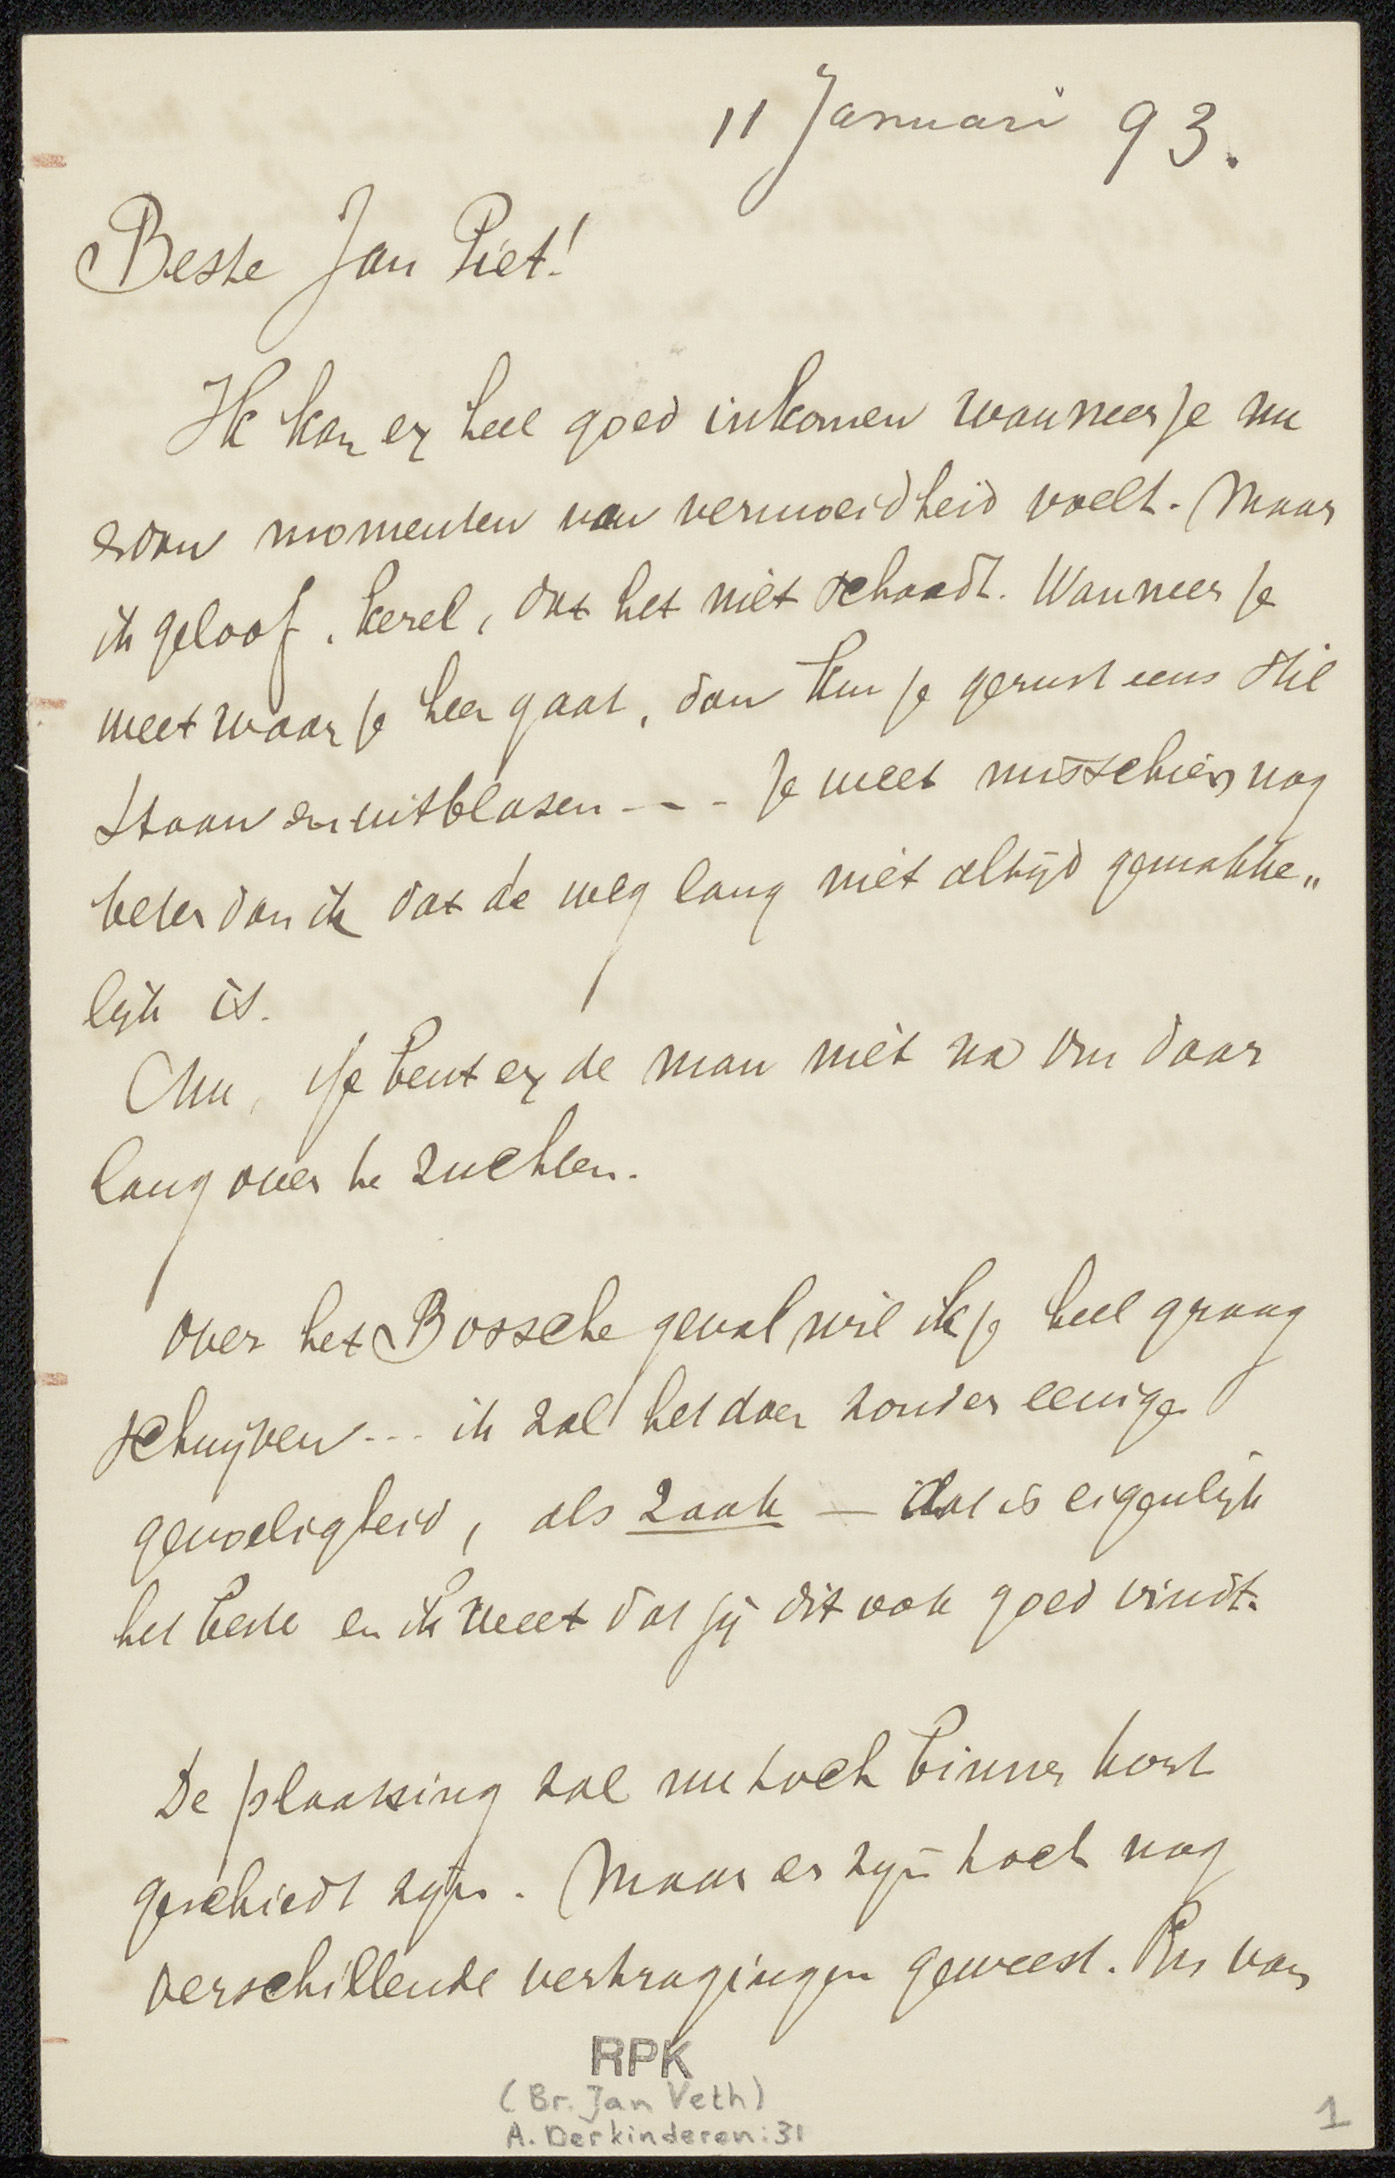 11 Januari 93.
Beste Jan Piet!
Ik kan er heel goed inkomen wanneer je nu
en dan momenten van vermoeidheid voelt. Maar
ik geloof, kerel, dat het niet schaadt. Wanneer je
weet waar je heen gaat, dan kun je gerust eens stil
staan en uitblasen --- Je weet misschien nog
beter dan ik dat de weg lang niet altijd gemakke„
lijk is.
Enu, je bent er de man niet na om daar
lang over te zuchten.
Over het Bossche geval wil ik je heel graag
schrijven --- ik zal het doen zonder eenige
gevoeligheid, als zaak — dat is eigenlijk
het beste en ik weet dat jij dit ook goed vindt.
De plaatsing zal nu toch binnen kort
geschiedt zijn. Maar er zijn toch nog
verschillende vertragingen geweest. Pas van
RPK
(Br. Jan Veth)
A. Derkinderen: 31
1